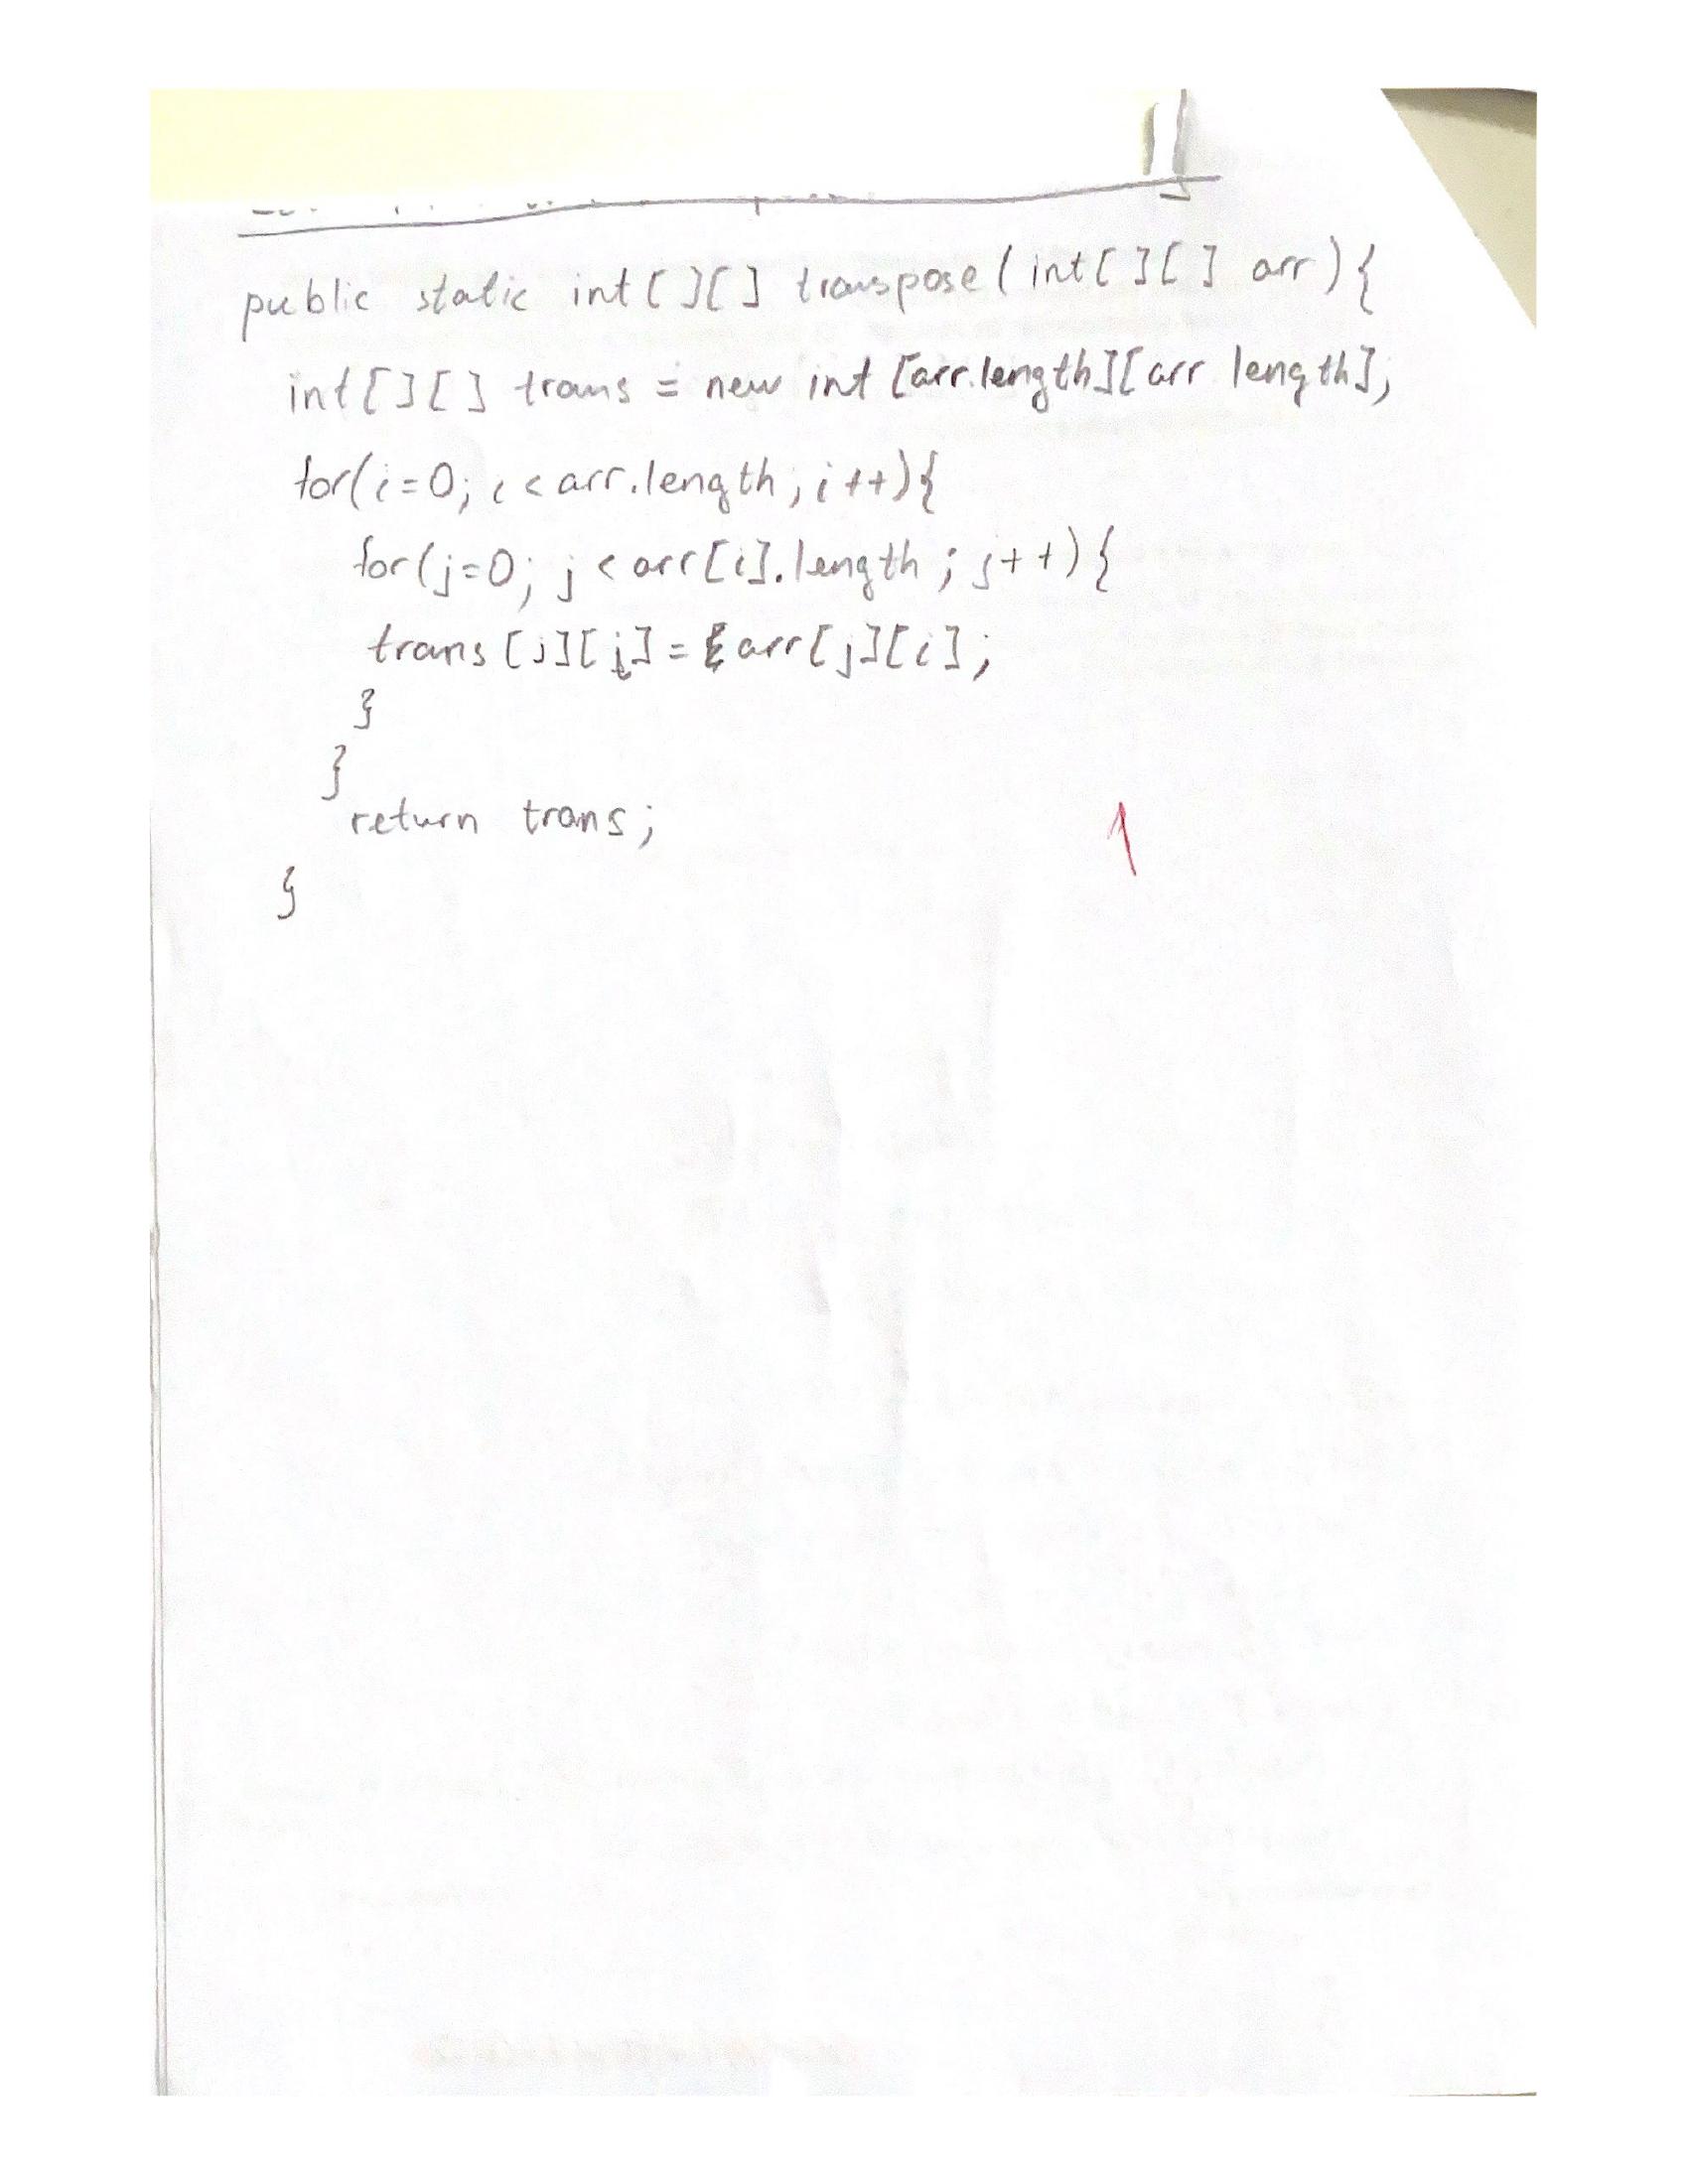 public static int[][] transpose(int[][] arr){
int[][] trans = new int [arr.length][arr length];
for(i=0; i<arr.length; i++){
for(j=0; j<arr[i].length; j++){
trans [j][i] = arr[j][i];
}
}
return trans;
}
1